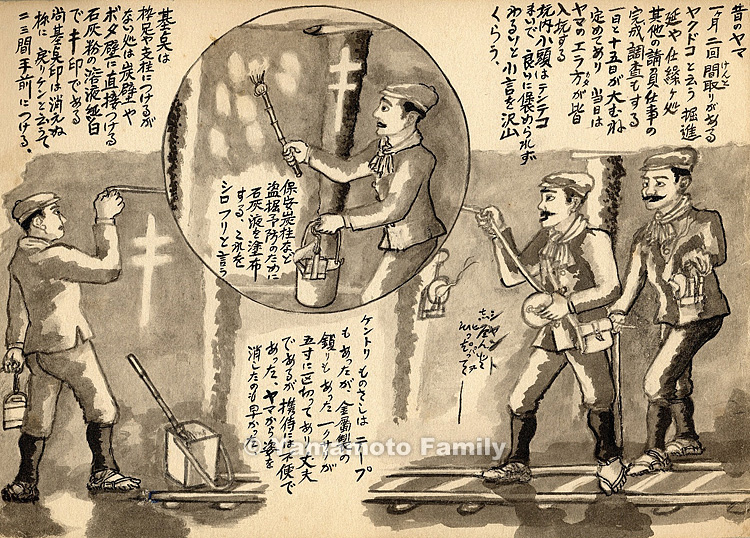 昔のヤマ
一ヶ月二回間取りがある
ヤクドコと云う 掘進
延や仕繰ヶ処
其他の請負仕事の
完成、調査もする
一日と十五日が大むね
定めてあり 当日は
ヤマのエラ方が皆
入坑する
坑内小頭はテンテコ
まいで 良いに褒められず
わるいと小言を沢山
くらう、
保安炭柱など
盗掘予防のために
石灰液を塗布
する、これを
シロフリと言う
基点は
枠足や支柱につけるが
ない処は炭壁や
ボタ壁に直接つける
石灰粉の溶液 純白
でキ印である
尚基点印は消えぬ
様に 戻りケンと云うて
二三間手前につける、
シャント
ケントリものさしはテープ
もあったが 金属製の
鎖りもあった 一クサリが
五寸に区切ってあり丈夫
であるが携帯は不便で
あった、ヤマから姿を
消したのも早かった
© Yamamoto Family